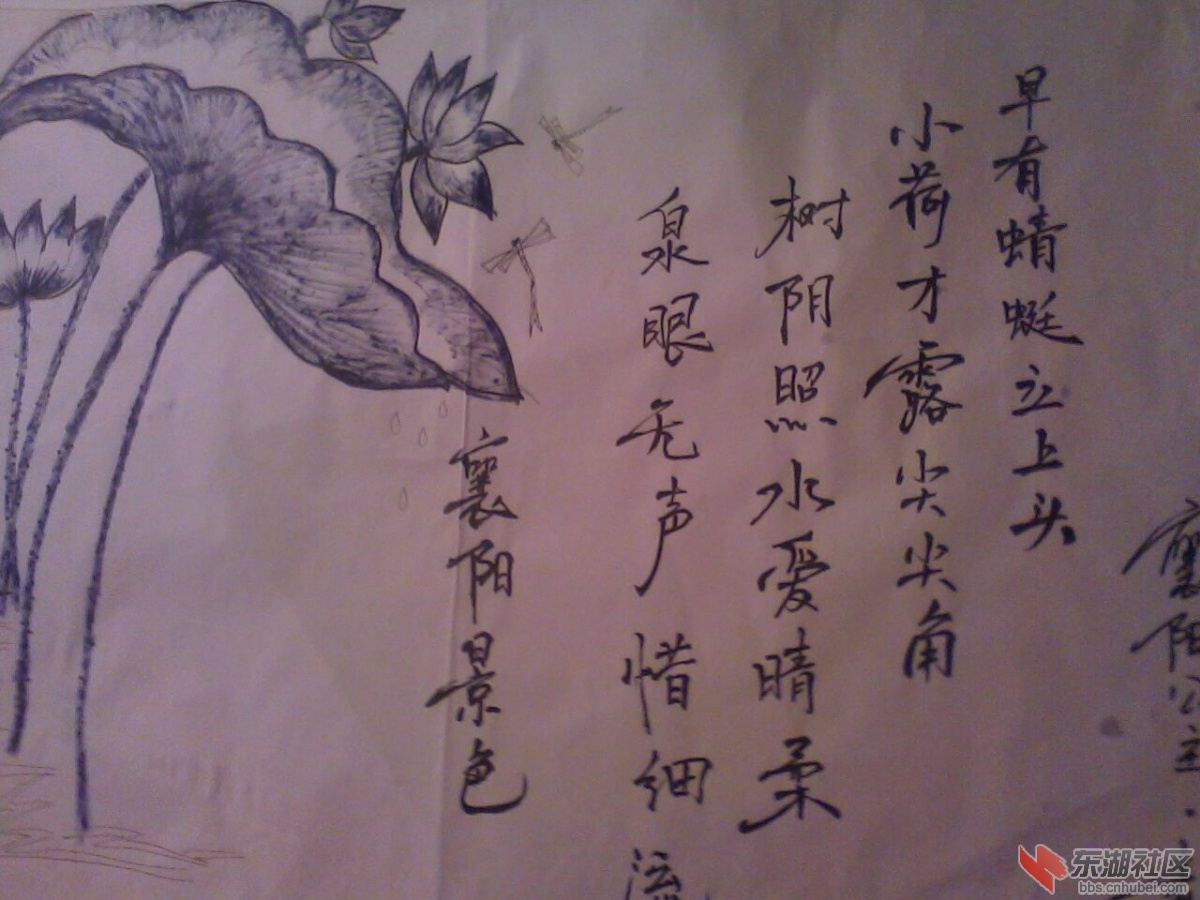 襄阳景色
泉眼无声惜细流
树阴照水爱晴柔
小荷才露尖尖角
早有蜻蜓立上头
襄阳公主·
东湖社区
bbs.cnhubei.com